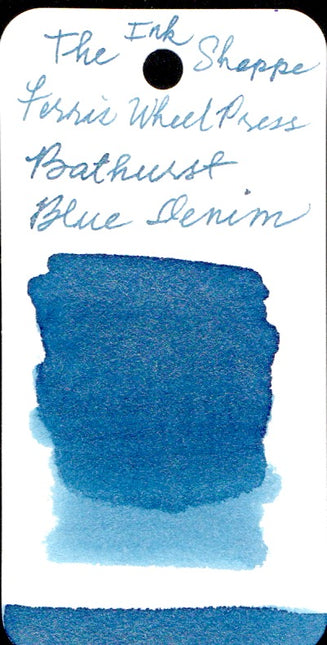 The Ink Shoppe
Ferris Wheel Press
Bathurst
Blue Denim